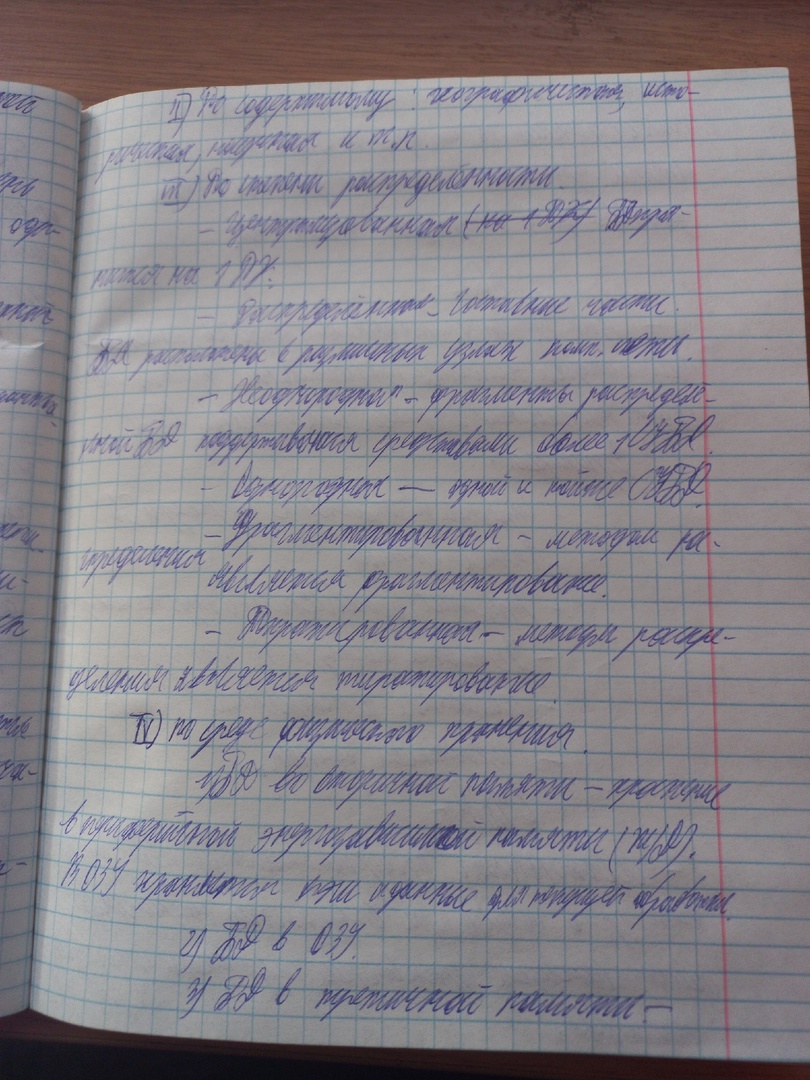 II) По содержимому: географическая, исто-
рическая, научная и т.п.
III) По степени распределённости.
- Централизованная (на 1 ПК) БД хра-
нится на 1 ПК.
- Распределённая - составные части
БД расположены в различных узлах комп. сети.
- Неоднородная - фрагменты распреде-
нной БД поддерживаются средствами более 1 СУБД.
- Однородная — одной и той же СУБД.
- Фрагментированная - методом ра-
спределения является фрагментирование.
- Тиражированная - методом распре-
деления является тиражирование.
IV) по среде физического хранения.
1) БД во вторичной памяти - хранение
в периферийной энергозависимой памяти (ЖД).
В ОЗУ хранятся кэш и данные для текущей обработки.
2) БД в ОЗУ.
3) БД в третичной памяти —